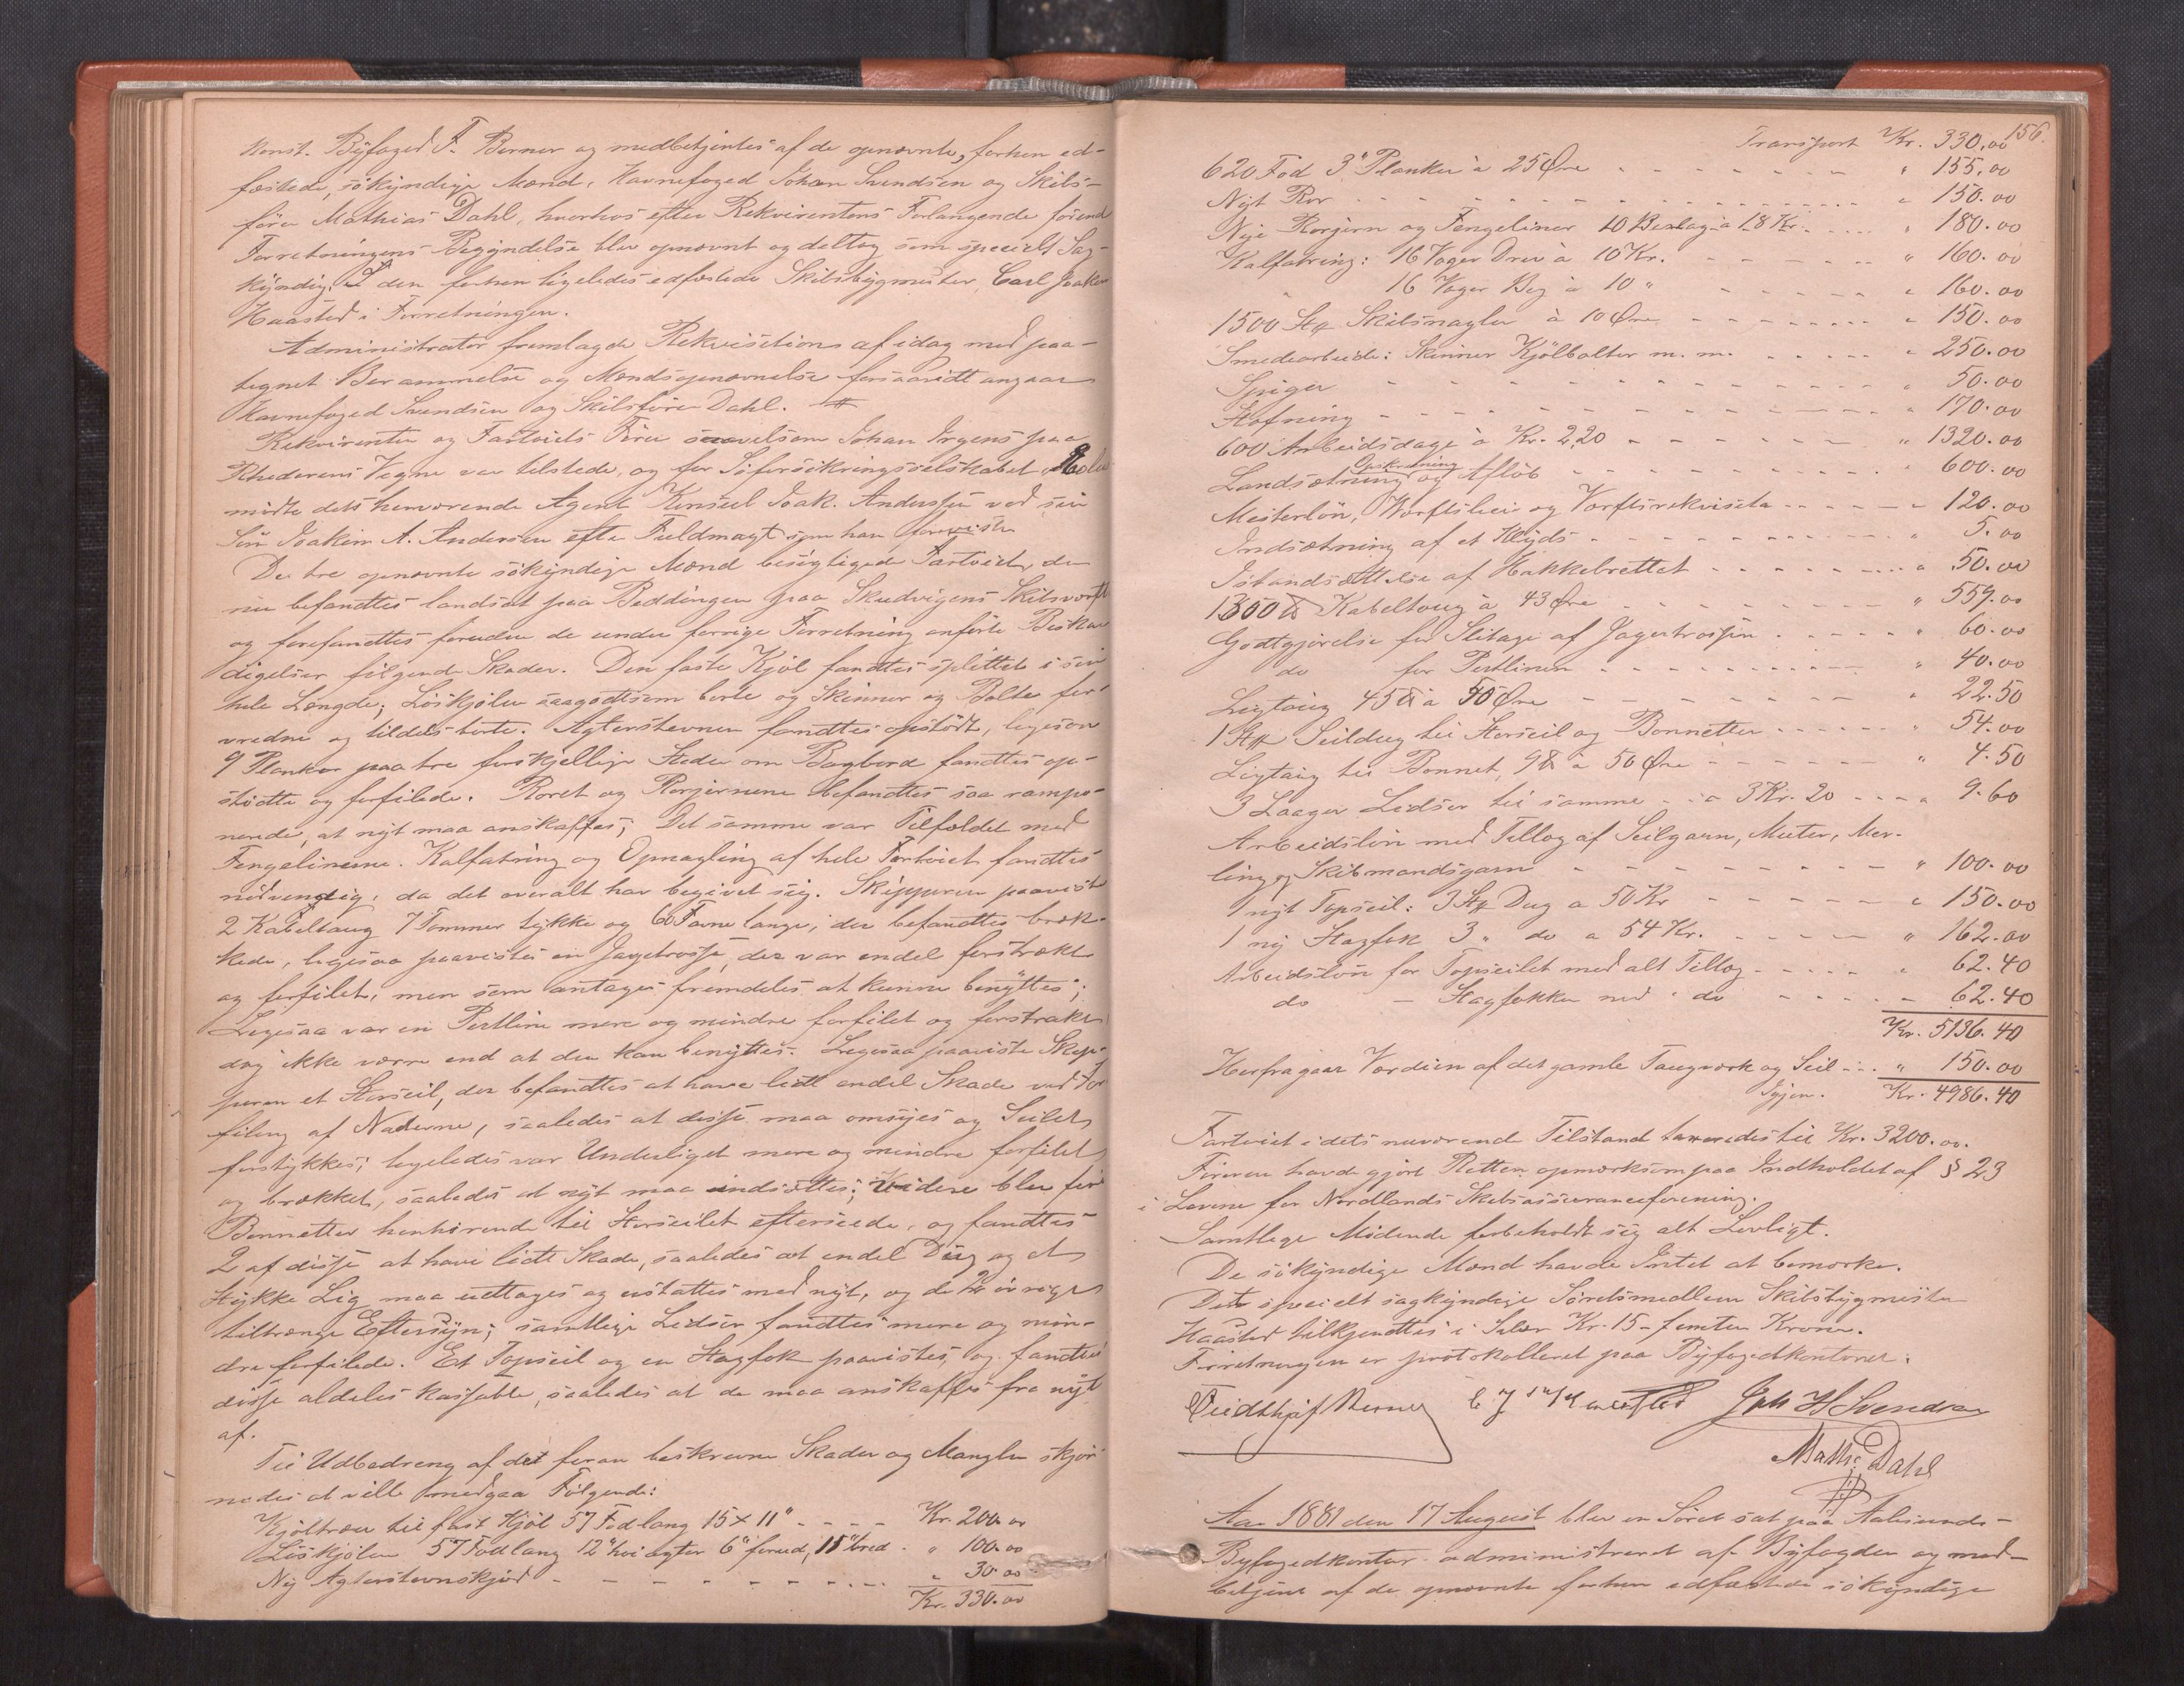 Konst. Byfoged F. Berner og medbetjentes af de opnævnte, forhen ed-
fæstede, søkyndige Mænd, Havnefoged Johan Svendsen og Skibs-
fører Mathias Dahl, hvorhos efter Rekvirentens Forlangende förend
Forretningens Begyndelse blev opnævnt og deltog som specielt Sag-
kyndig den forhen ligeledes edfæstede Skibsbygmester, Carl Joakim
Haasted i Forretningen.
Administrator fremlagde Rekvisition af idag med paa-
tegnet Berammelse og Mandsopnævnelse forsaavidt angaar
Havnefoged Svendsen og Skibsfører Dahl.
Rekvirenten og Fartøiets Fører saavelsom Johan Irgens paa
Rhederens Vegne var tilstede, og for Søforsikringsselskabet
mødte dets herværende Agent Konsul Joak. Andersen ved sin
Søn Joakim A. Andersen efter Fuldmagt som han foreviste
De tre opnævnte søkyndige Mænd besigtigede Fartøiet, der
nu befandtes landsat paa Beddingen paa Skudvigens Skibsværft
og forefandtes foruden de under forrige Forretning anførte Beska-
digelser følgende Skader. Den faste Kjøl fandtes splittet i sin
hele Længde; Löskjølen saagodtsom borte og Skinner og Bolte for-
vredne og tildels borte. Agterstevnen fandtes opstødt, ligesom
9 Planker paa tre forskjellige Steder om Bagbord fandtes op-
stødte og forfilede. Roret og Rorjernene befandtes saa rampo-
nerede, at nyt maa anskaffes; Det samme var Tilfældet med
Fengelinerne. Kalfatring og Opnagling af hele Fartøiet fandtes
nødvendig, da det overalt har begivet sig. Skipperen paaviste
2 Kabeltaug 7 Tommer tykke og 60 Favne lange, der befandtes bræk-
kede, ligesaa paavistes en Jagertrosse, der var endel forstrakt
og forfilet, men som antages fremdeles at kunne benyttes;
Ligesaa var en Pertline mere og mindre forfilet og forstrakt
dog ikke værre end at den kan benyttes. Ligesaa paaviste Skip-
peren et Storseil, der befandtes at have lidt endel Skade ved For-
filing af Naderne, saaledes at disse maa omsyes og Seilet
forstykkes; ligeledes var Underliget mere og mindre forfilet
og brækket, saaledes at nyt maa indsættes; Videre blev fire
Bonnetter henhørende til Storseilet efterseede, og fandtes
2 af disse at have lidt Skade, saaledes at endel Dug og et
Stykke Lig maa udtages og erstattes med nyt, og de 2 øvrige
tiltrænge Eftersyn; samtlige Ledser fandtes mere og min-
dre forfilede. Et Topseil og en Stagfok paavistes og fandtes
disse aldeles kassable, saaledes at de maa anskaffes fra nyt
af.
Til Udbedring af de foran beskrevne Skader og Mangler skjøn-
nedes at ville medgaa Følgende:
Kjøltræer til fast Kjøl 57 Fod lang 15 x 11" - - - - Kr. 200.00
Löskjølen 57 Fod lang 12" høi agter 6" forud, 11" bred . " 100.00
Ny Agterstevnskjød - - - - - - - - " 30.00
Kr. 330.00
156.
Transport Kr. 330,00
620 Fod 3" Planker à 25 Øre - - - - - - " 155,00
Nyt Ror - - - - - - - - - - " 150.00
Nye Rorjern og Fengeliner 10 Beslag à 18 Kr. - - - " 180.00
Kalfatring: 16 Voger Drev à 10 Kr. - - - - - " 160.00
" 16 Voger Beg à 10 " - - - - - - " 160.00
1500 Stk Skibsnagler à 10 Øre - - - - - - " 150.00
Smedearbeide: Skinner Kjölbolter m. m. - - - - " 250.00
Spiger - - - - - - - - - - " 50.00
Støfning - - - - - - - - - - " 170.00
600 Arbeidsdage à Kr. 2,20 - - - - - - " 1320.00
Opskruning
Landsætning og Afløb - - - - - - " 600.00
Mesterløn, Værftsleie og Værftsrekvisita - - - - - " 120.00
Indsætning af et Klyds - - - - - - " 5.00
Istandsættelse af Hakkebrettet - - - - - - " 50.00
1300 ℔ Kabeltoug à 43 Øre - - - - - - " 559.00
Godtgjørelse for Slitage af Jagertrossen - - - - " 60.00
do for Pertlinen - - - - - - " 40.00
Ligtoug 45 ℔ à 50 Øre - - - - - - " 22.50
1 Stk Seildug til Storseil og Bonnetter - - - - - " 54.00
Ligtoug til Bonnet, 9 ℔ a 50 Øre - - - - - " 4.50
3 Laager Ledser til samme - - a 3 Kr. 20 - - - " 9.60
Arbeidsløn med Tillæg af Seilgarn, Huder, Mer-
ling og Skibmandsgarn - - - - - - " 100.00
1 nyt Topseil: 3 Stk Dug a 50 Kr - - - - - " 150.00
1 ny Stagfok 3 " do a 54 Kr. - - - - " 162.00
Arbeidsløn for Topseilet med alt Tillæg - - - - " 62.40
do - Stagfokken med " do - - - - - 62.40
Kr. 5136.40
Herfra gaar Værdien af det gamle Taugværk og Seil - - " 150.00
Igjen. Kr. 4986.40
Fartøiet i dets nuværende Tilstand taxeredes til Kr. 3200.00.
Føreren havde gjort Retten opmærksom paa Indholdet af § 23
i Lovene for Nordlands Skibsassuranceforening.
Samtlige Mødende forbeholdt sig alt Lovligt.
De søkyndige Mænd havde Intet at bemærke.
Det specielt sagkyndige Søretsmedlem Skibsbygmester
Haasted tilkjendtes i Salær Kr. 15 - femten Kroner.
Forretningen er protokolleret paa Byfogedkontoret.
Fridthjof Berner C J Haasted Joh H Svendsen
Maths. Dahl
Aar 1881 den 17 August blev en Søret sat paa Aalesunds-
Byfogedkontor administreret af Byfogden og med-
betjent af de opnævnte forhen edfæstede søkyndige